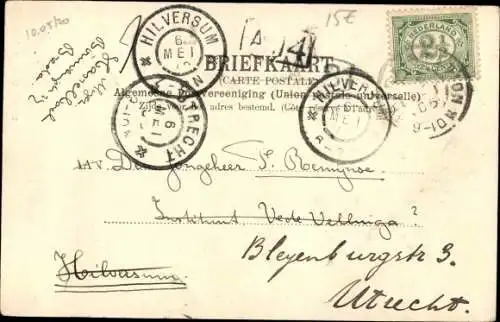 10.05/20
15E
A 14
HILVERSUM
6
MEI
NEDERLAND
2½
BRIEFKAART
(CARTE POSTALE)
Algemeene Postvereeniging (Union postale universelle)
Zijde voor het adres bestemd. (Côté réservé à l'adresse)
HILVERSUM
MEI
UTRECHT
6
MEI
9-10 N
AAN Den Jongeheer
Instituut Vede Vellinga ?
Bleyenburgstr 3.
Hilversum
Utrecht.